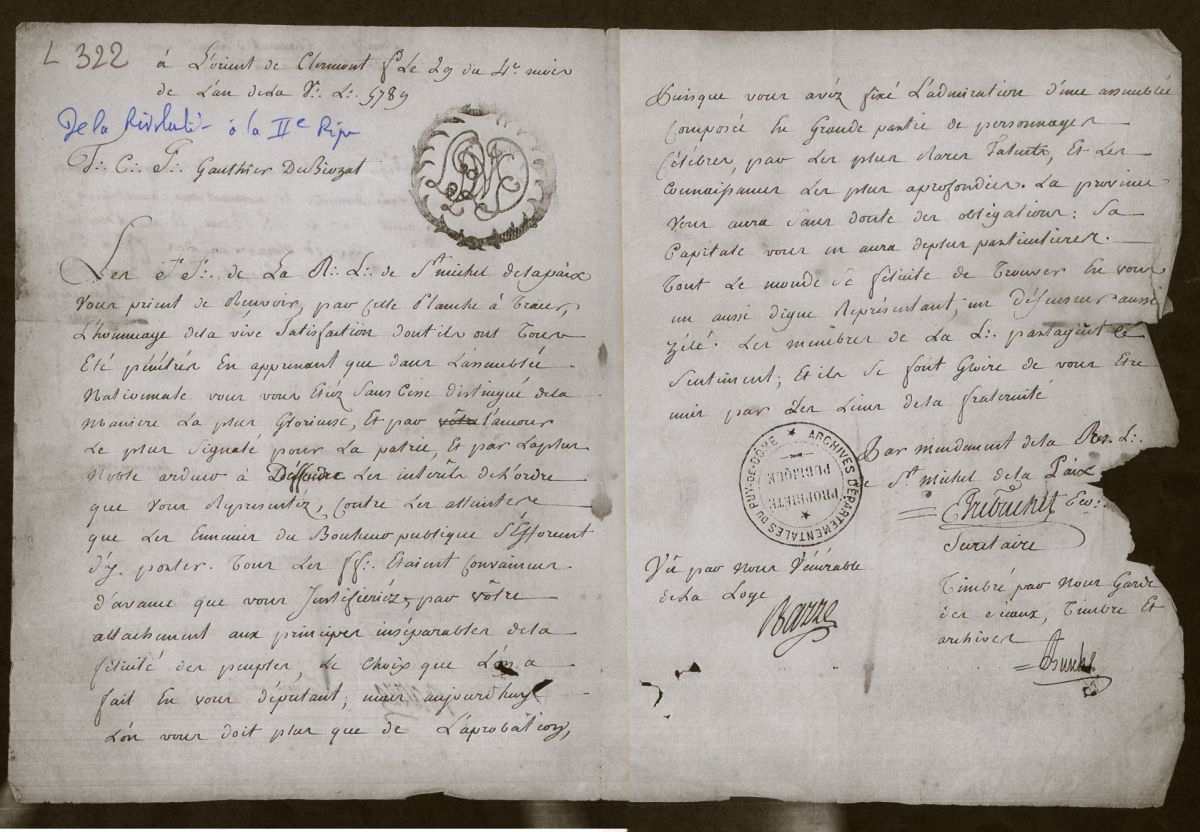 L 322
à L'orient de Clermont fd Le 29 du 4e. mois
de L'an de La V∴ L∴ 5789
De la Révoluti- à la IIe Rép
T∴ C∴ F∴ Gauthier DeBiozat
Les FF∴ de La R∴ L∴ de St. michel de la paix
Vous prient de Recevoir, par cette Planche à tracer,
L'hommage de la vive Satisfaction dont ils ont Tous
Eté pénétrés En apprenant que dans L'assemblée
Nationale vous vous Etiéz Sans Cesse distingué de la
Maniere La plus Glorieuse, Et par l'amour
Le plus Signalé pour La patrie, Et par La plus
Noble ardeur à Deffendre Les interêts de L'ordre
que Vous Représentéz, Contre Les atteintes
que Les Ennemis du Bonheur publique S'Efforcent
d'y porter. Tous Les ff∴ Etaient Convaincus
d'avance que vous Justifieriéz, par vôtre
attachement aux principes inséparables de la
félicité des peuples, Le Choix que L'on a
fait En vous députant; mais aujourd'huy
L'on vous doit plus que de L'aprobation,
Puisque vous avéz fixé L'admiration d'une assemblée
Composée En Grande partie de personnages
Célébres, par Les plus Rares Talents, Et Les
Connaissances Les plus aprofondies. La province
Vous aura Sans doute des obligations: Sa
Capitale vous en aura de plus particulieres.
Tout Le monde Se félicite de Trouver En vous
un aussi digne Représentant, un défenseur aussi
Zélé. Les membres de La L∴ partagent ce
Sentiment; Et ils Se font Gloire de vous Etre
unis par Les Liens de la fraternité
Par mandement de la R. L∴
St. Michel de la Paix
Secretaire
ARCHIVES DÉPARTEMENTALES DU PUY-DE-DÔME
PROPRIÉTÉ
PUBLIQUE
Vû par Nous Vénérable
de La Loge
Timbré par Nous Garde
des Sceaux, Timbre Et
archives